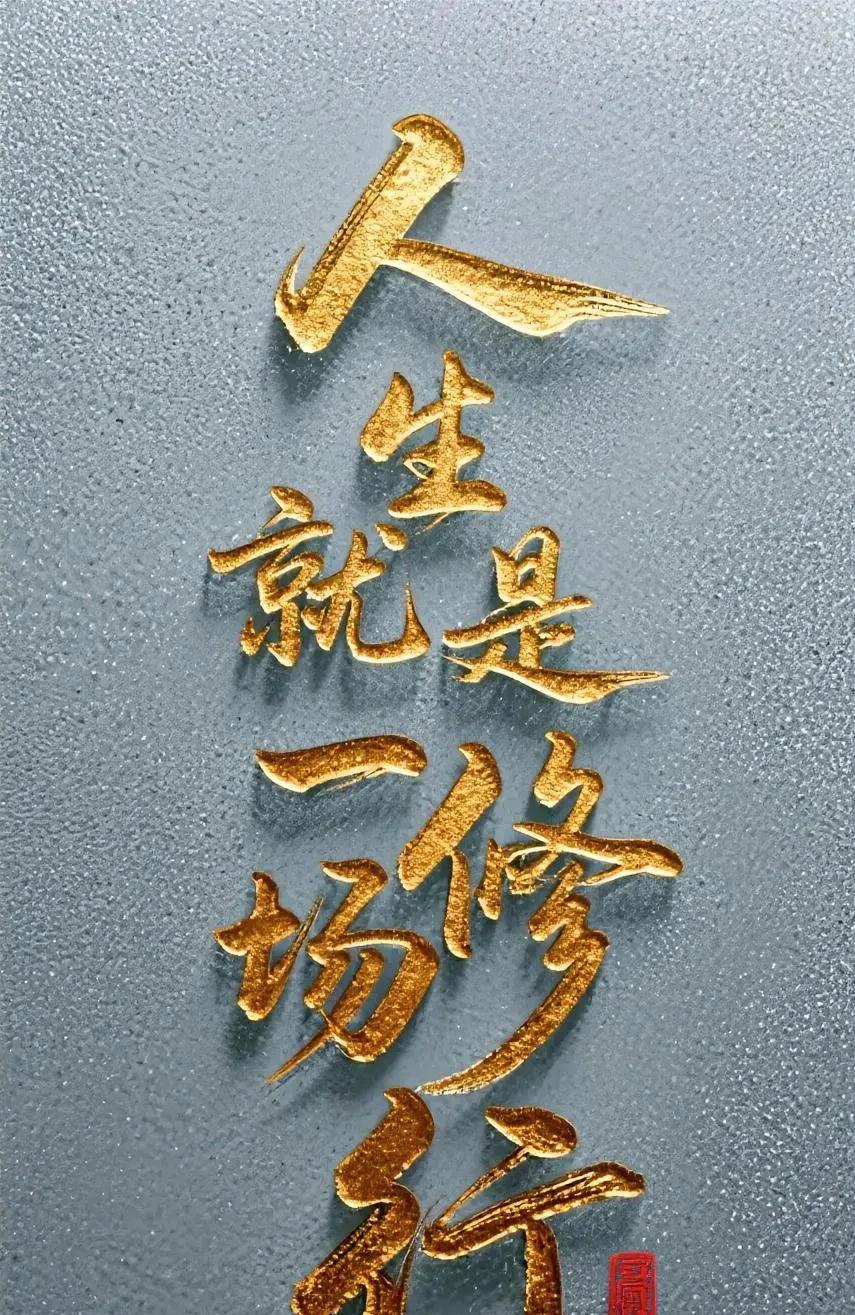 人生就是一场修行